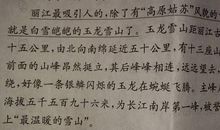 丽江最吸引人的，除了有“高原姑苏”风貌的
就是白雪皑皑的玉龙雪山了。玉龙雪山距丽江古
十五公里，由北向南绵延近五十公里，有十三座山
前面的山峰昂然挺立，其后峰峰相连，远远望去，
绕，好像一条银鳞闪烁的玉龙在蜿蜒飞腾。主峰
海拔五千五百九十六米，为长江南岸第一峰，被誉
上“最温暖的雪山”。